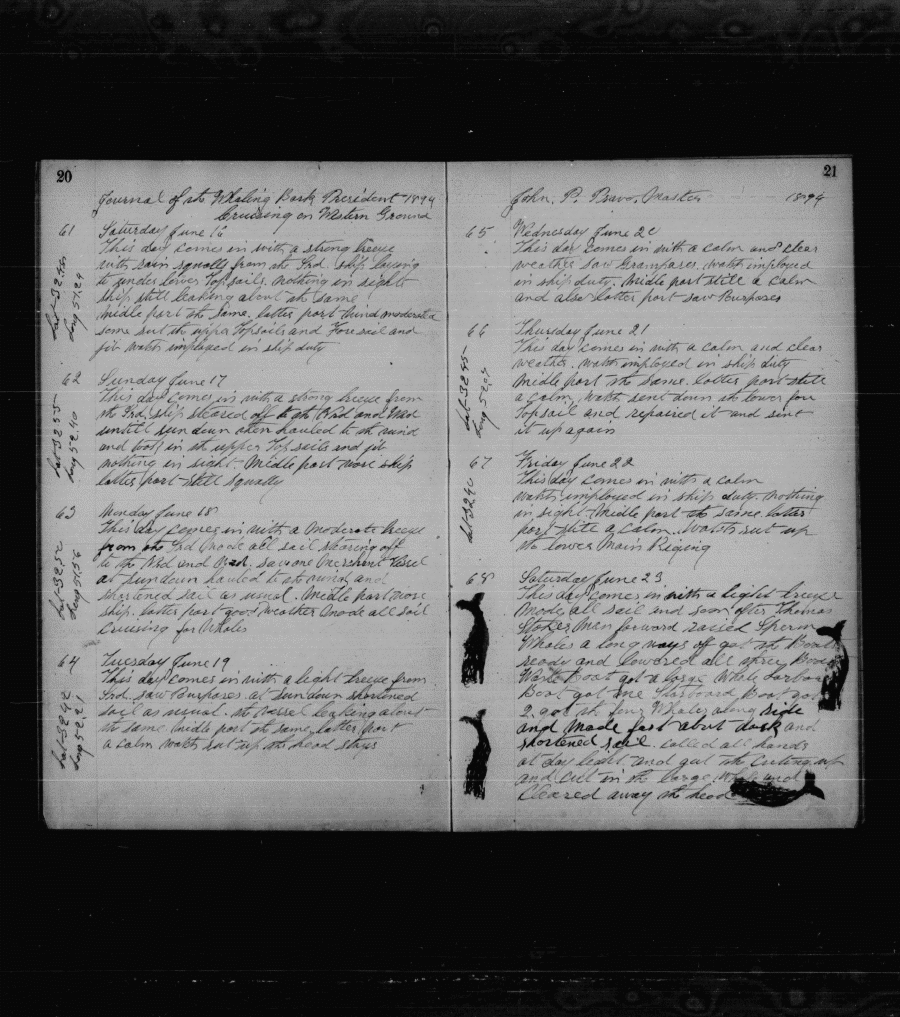 20
Journal of the Whaling Bark President 1894
Cruising on Western Ground
61 Saturday June 16
This day comes in with a strong breeze
with rain squalls from the Srd. ship laying
to under lower Topsails. nothing in sight
ship still leaking about the same
middle part the same. latter part wind moderated
some sut the upper Topsails and Fore sail and
jib watch imployed in ship duty
62 Sunday June 17
This day comes in with a strong breeze from
the Srd. ship steared off to the Nrd and Wrd
untill sundown then hauled to the wind
and took in the upper Top sails and jib
nothing in sight. Middle part wore ship
latter part still squally
Lat 32.55
Long 52.40
63 Monday June 18
This day comes in with a moderate breeze
from the Srd made all sail stearing off
to the Nrd and saw one Merchant Vessel
at sundown hauled to the wind and
shortened sail as usual. Middle part wore
ship. latter part good weather made all sail
Cruising for Whales
Long 51.56
64 Tuesday June 19
This day comes in with a light breeze from
Srd. saw Purposes. at sundown shortened
sail as usual. the vessel leaking about
the same middle part the same, latter part
a calm watch sut up the head stays
Lat 32.42
Long 52.21
21
John. P. Pravo. Master 1894
65 Wednesday June 20
This day comes in with a calm and clear
weather saw Grampases. watch imployed
in ship duty. Middle part still a Calm
and also latter part saw Purposes
66 Thursday June 21
This day comes in with a calm and clear
weather. watch imployed in ship duty
Middle part the same. latter part still
a calm, watch sent down the lower fore
Topsail and repaired it and sent
it up again
Lat 32.45
Long 52.07
67 Friday June 22
This day comes in with a calm
watch imployed in ship duty. nothing
in sight. Middle part the same. latter
part still a calm. watch sut up
the lower Main Riging
Lat 32.40
68 Saturday June 23
This day comes in with a light breeze
Made all sail and soon after Thomas
Stokes Man forward raised Sperm
Whales a long ways off got the Boats
ready and lowered all three Boats
Waist Boat got a large Whale Larboard
Boat got one Starboard Boat got
2. got the four Whales along side
and made fast about dark and
shortened sail. called all hands
at day light and got the Cuting up
and Cut in the large Whale and
Cleared away the head